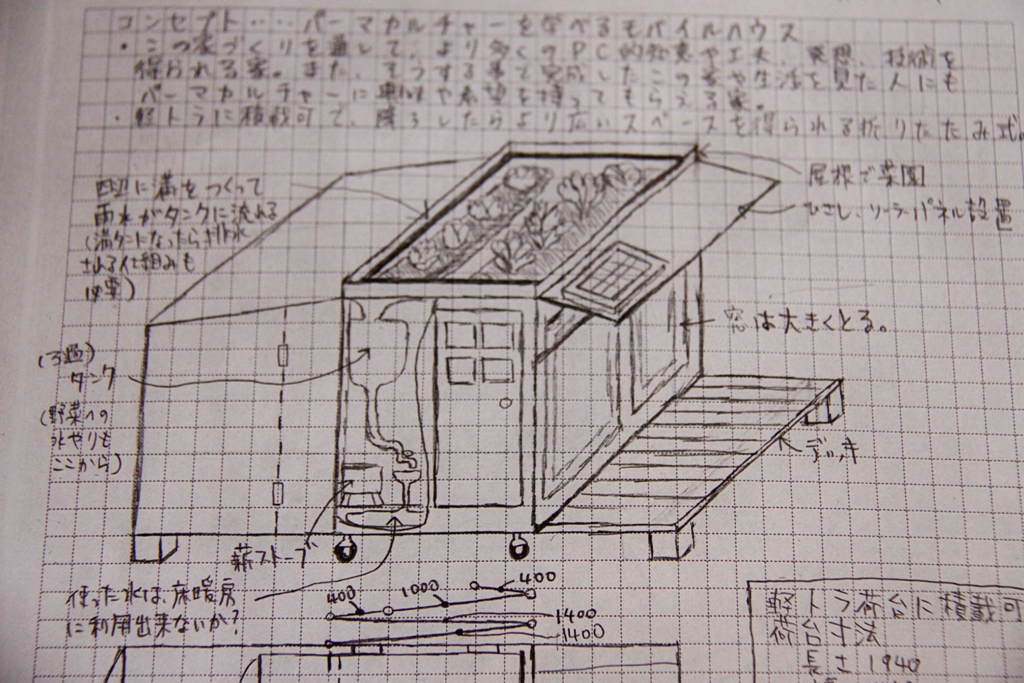 コンセプト‥‥パーマカルチャーを学べるモバイルハウス
・この家づくりを通して、より多くのPC的知恵や工夫、発想、技術を
得られる家。また、そうする事で完成したこの家や生活を見た人にも
パーマカルチャーに興味や希望を持ってもらえる家。
・軽トラに積載可で、降ろしたらより広いスペースを得られる折りたたみ式。
四辺に溝をつくって
雨水がタンクに流れる
(満タンになったら排水
される仕組みも
必要)
屋根で菜園
ひさし、ソーラーパネル設置
窓は大きくとる。
(ろ過)
タンク
(野菜への
水やりも
ここから)
デッキ
薪ストーブ
使った水は、床暖房
に利用出来ないか?
400
1000
400
1400
1400
軽トラ荷台に積載可
荷台寸法
長さ 1940